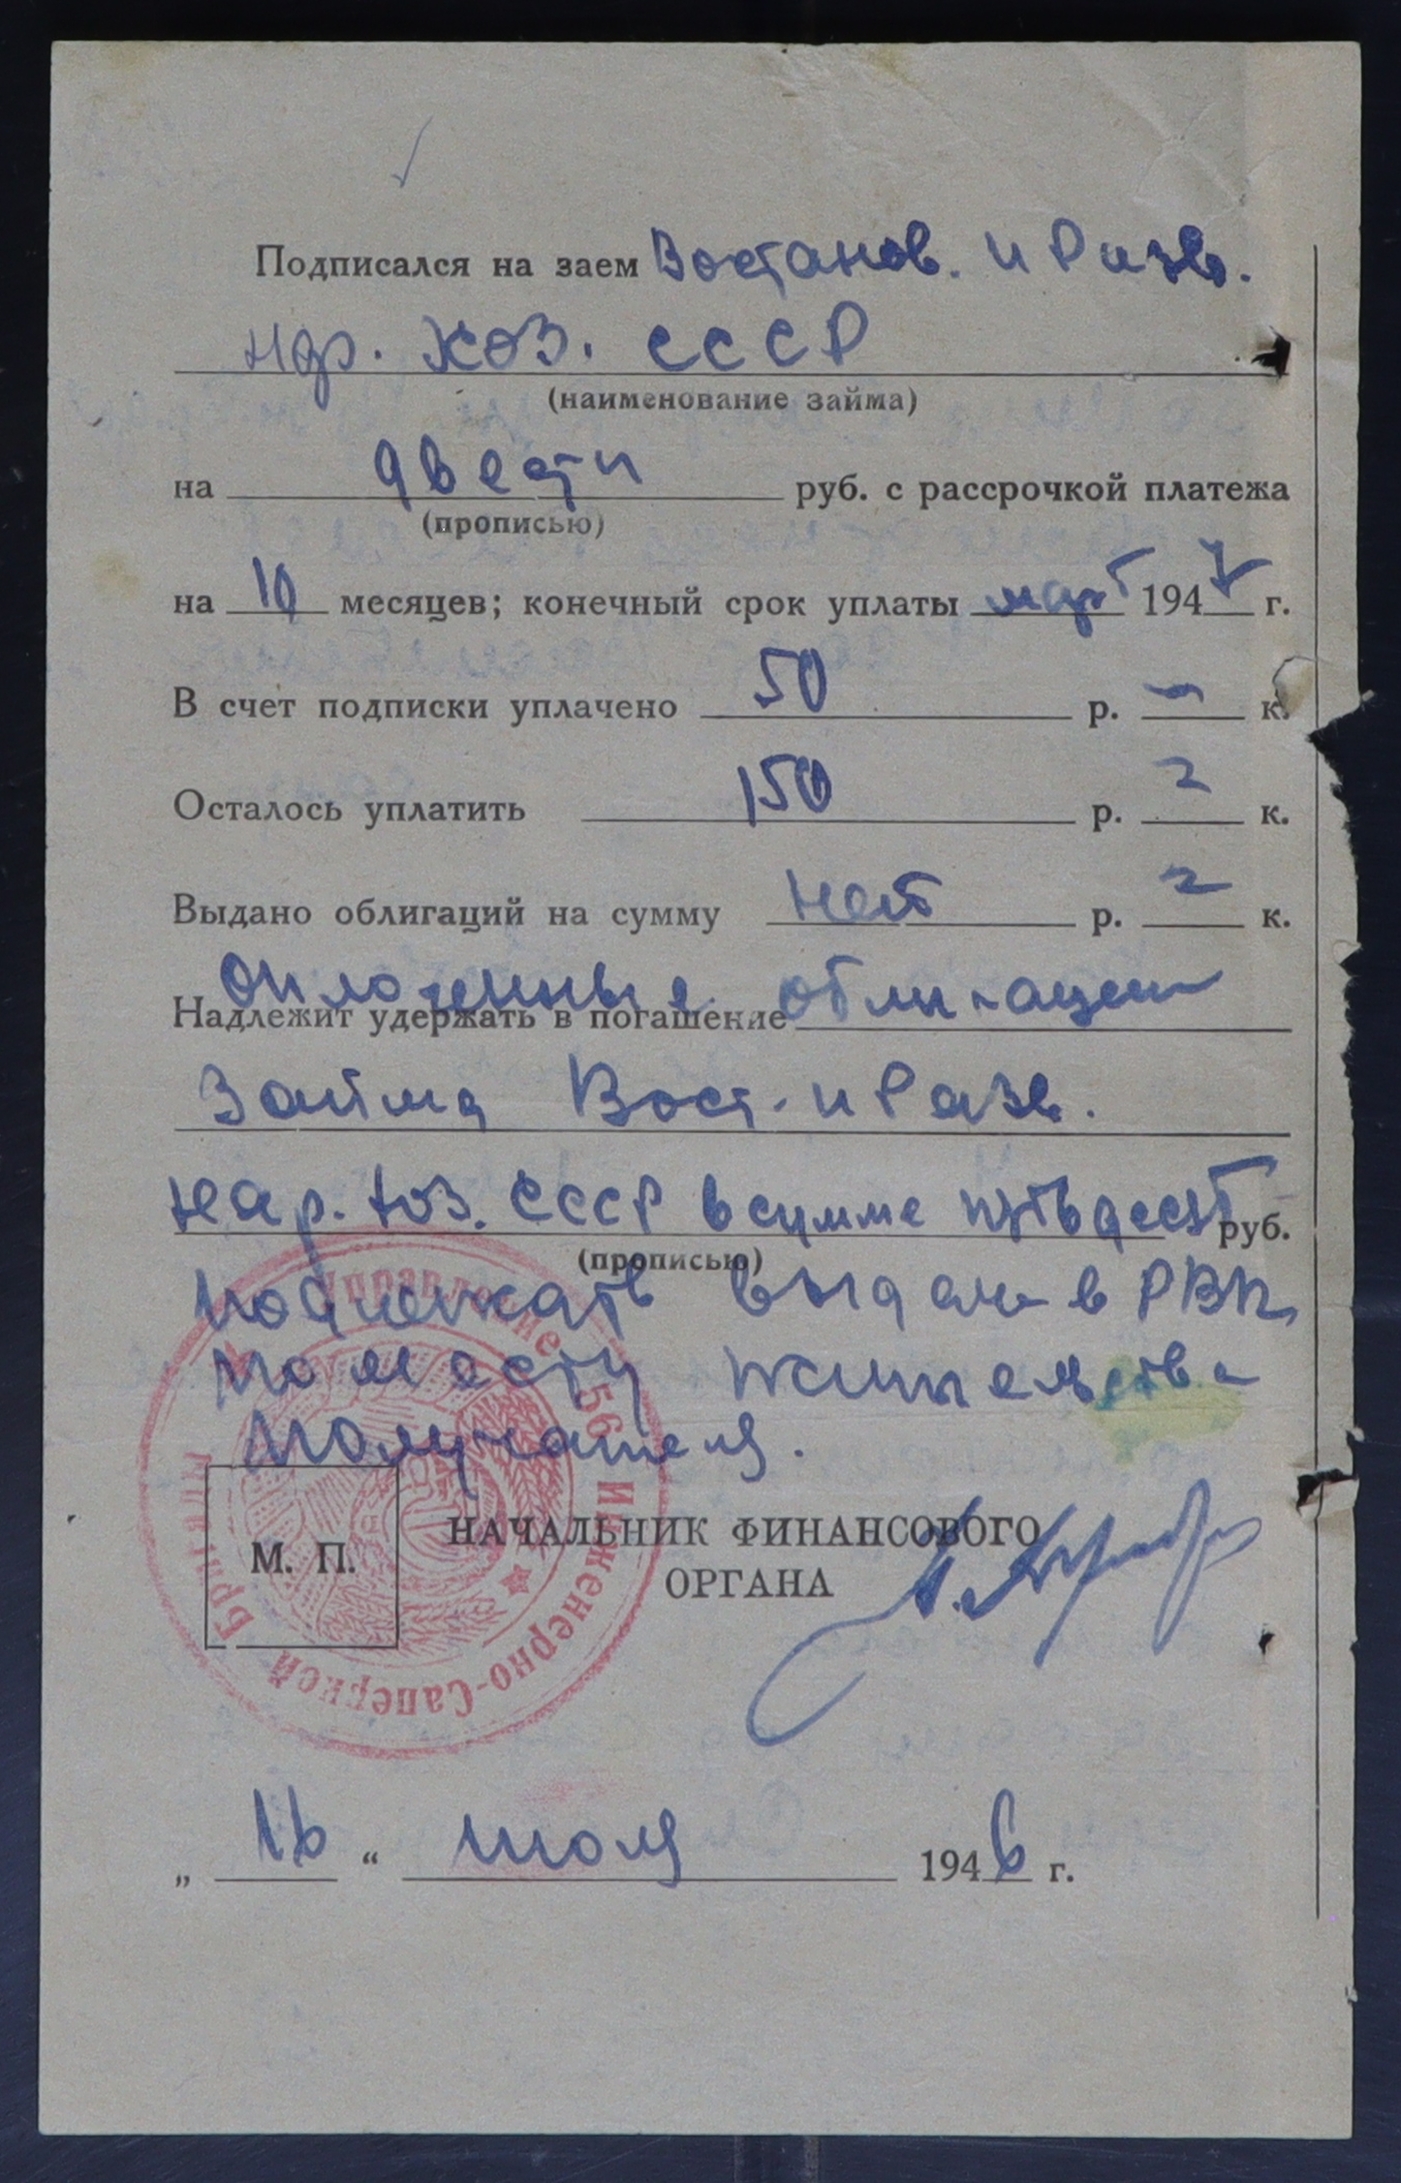 Подписался на заем Востанов. и Разв.
нар. хоз. СССР
(наименование займа)
на двести руб. с рассрочкой платежа
(прописью)
на 10 месяцев; конечный срок уплаты март 1947 г.
В счет подписки уплачено 50 р. - к.
Осталось уплатить 150 р. - к.
Выдано облигаций на сумму нет р. - к.
Оплоченные облигации
Надлежит удержать в погашение
Займа Вост. и Разв.
нар. хоз. СССР в сумме пятьдесят руб.
(прописью)
подлежать выдаче в РВК
по месту жительства
получателя.
Управление 56 Инженерно-Саперной Бригады
М. П.
НАЧАЛЬНИК ФИНАНСОВОГО
ОРГАНА
„ 16 “ июля 1946 г.